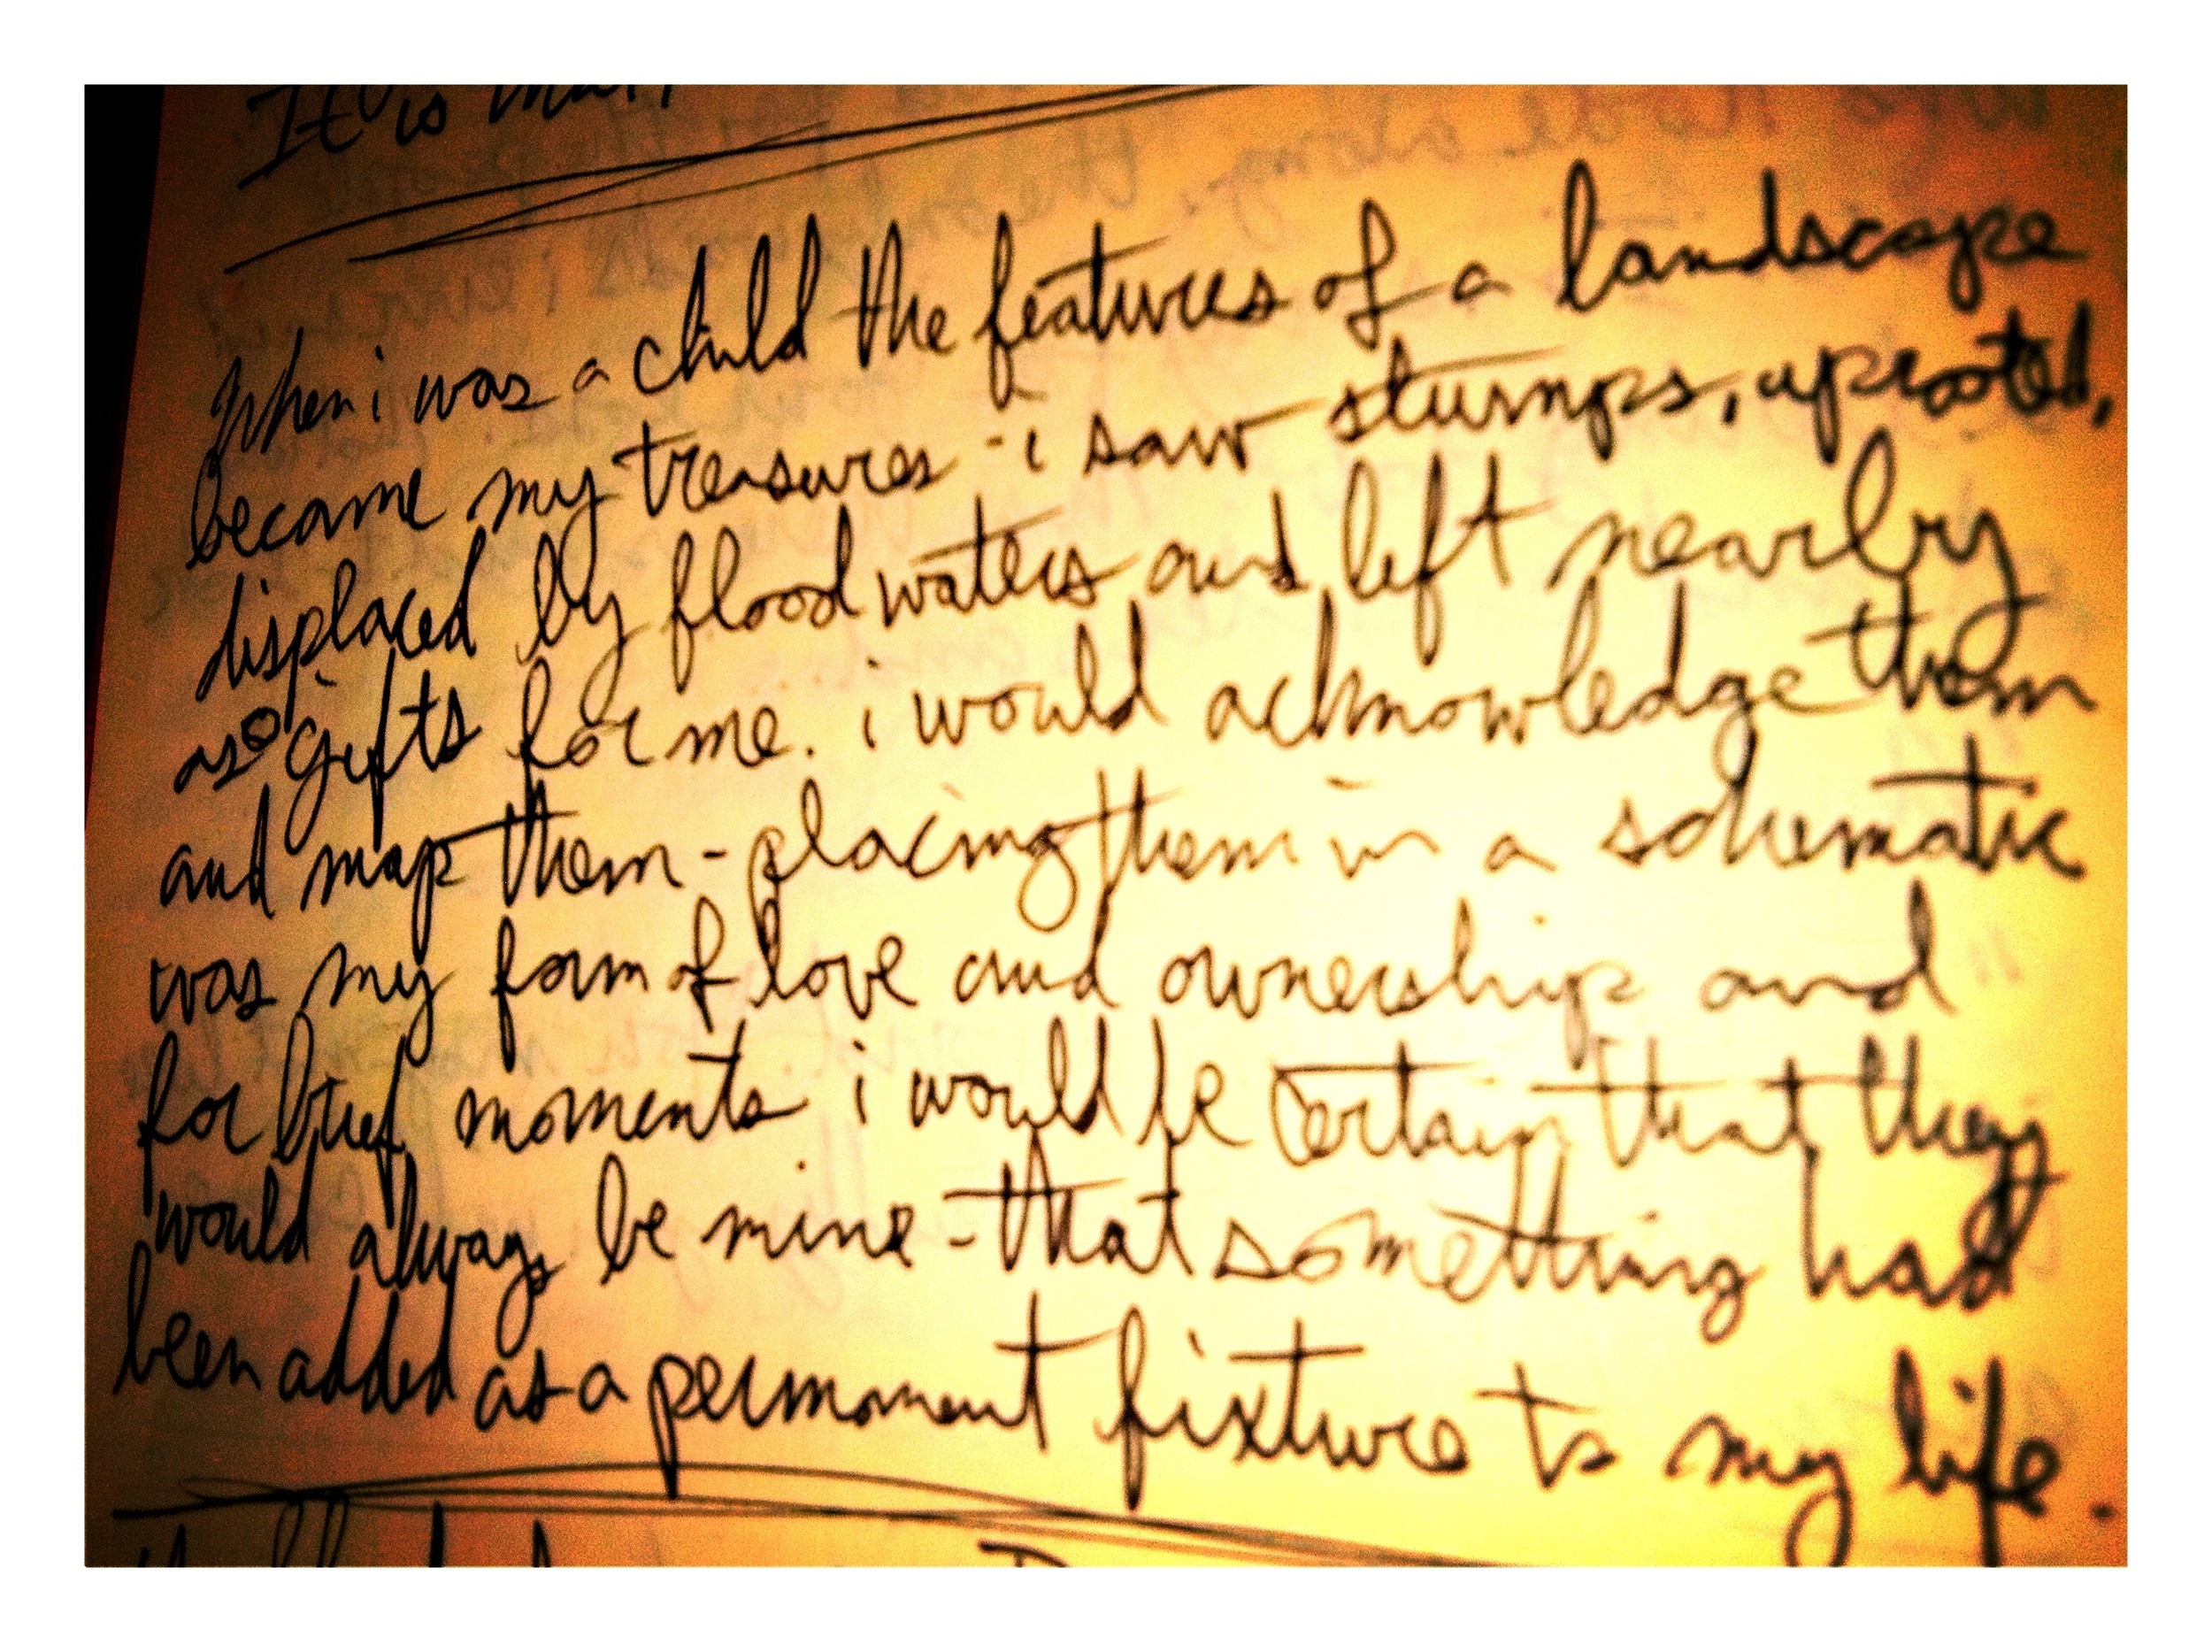 It is
When i was a child the features of a landscape
became my treasures - i saw stumps, uprooted,
displaced by flood waters and left nearby
as gifts for me. i would acknowledge them
and map them - placing them in a schematic
was my form of love and ownership and
for brief moments i would be certain that they
would always be mine - that something had
been added as a permanent fixture to my life.